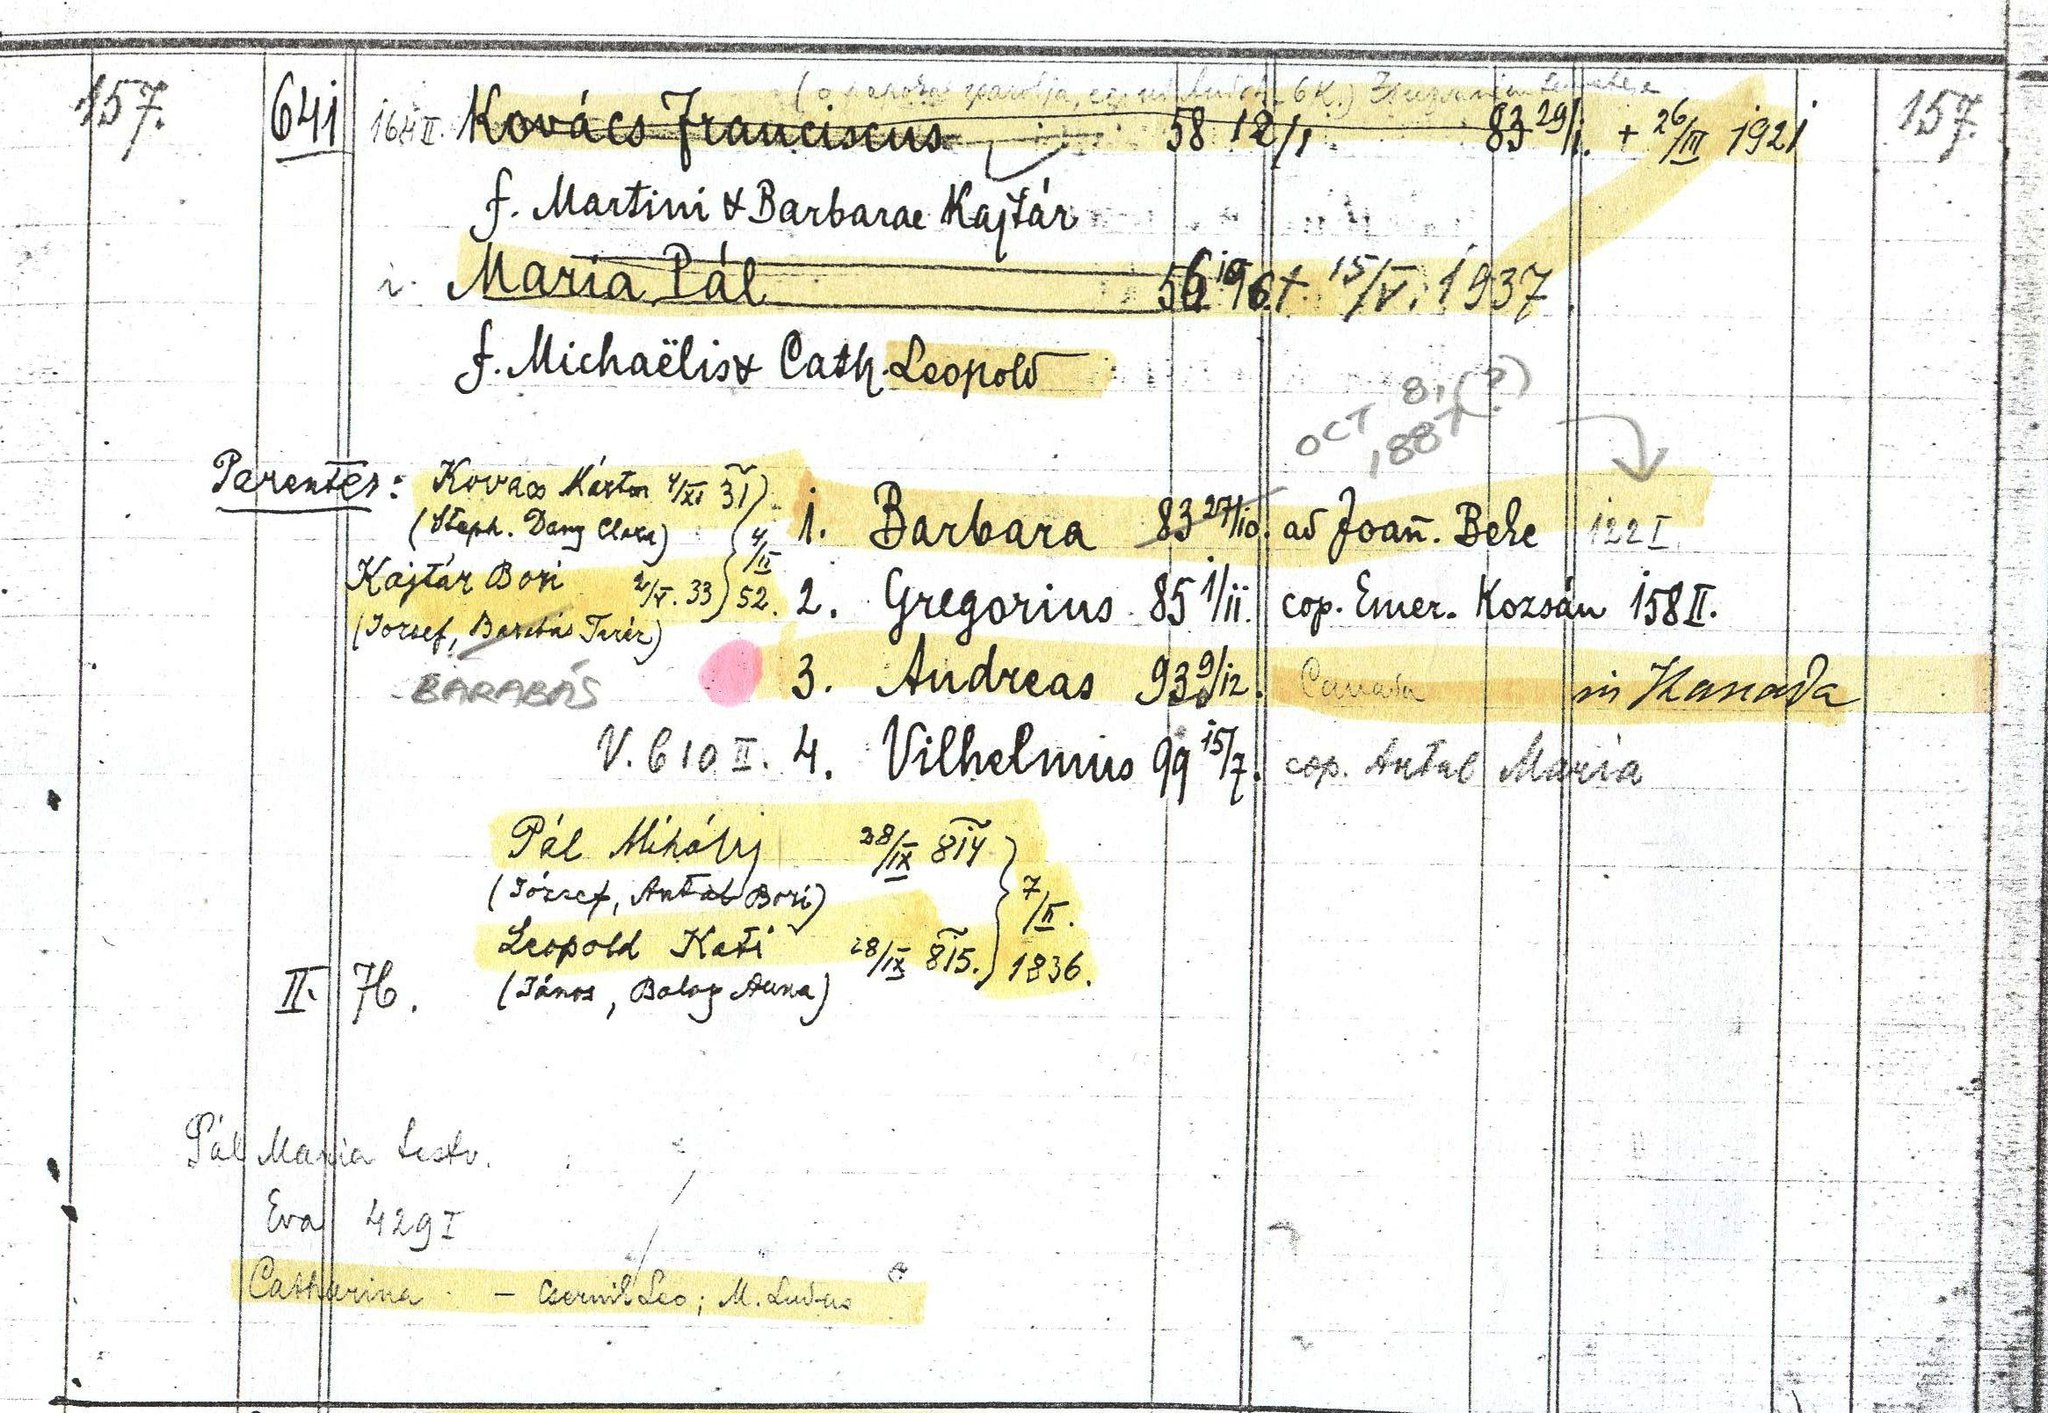 157. 641 164 II. Kovács Franciscus 58 12/1. 83 29/1. + 26/III 1921 157.
f. Martini & Barbarae Kajtár
Maria Pál 15/V. 1937
f. Michaëlis & Cath. Leopold
OCT 8, (?)
Parentes: Kovács Márton 4/XI 31
(Steph. Dany Clara)
1. Barbara 83 27/10. ad Joañ. Bele 122 I
Kajtár Bori 2/V. 33 4/II 52.
2. Gregorius 85 1/11. cop. Emer. Kozsán 158 II.
(József, Barabás Teréz)
BARABÁS
3. Andreas 93 9/12. Canada in Kanada
V. 610 II. 4. Vilhelmus 99 15/7. cop. Antal Maria
Pál Mihály 28/IX 814
(József, Antal Bori) 7/II.
Leopold Kati 28/IX 815. 1836.
II. 76. (János, Balog Anna)
Pál Maria testv.
Eva 429 I
Catharina – Leo; M.